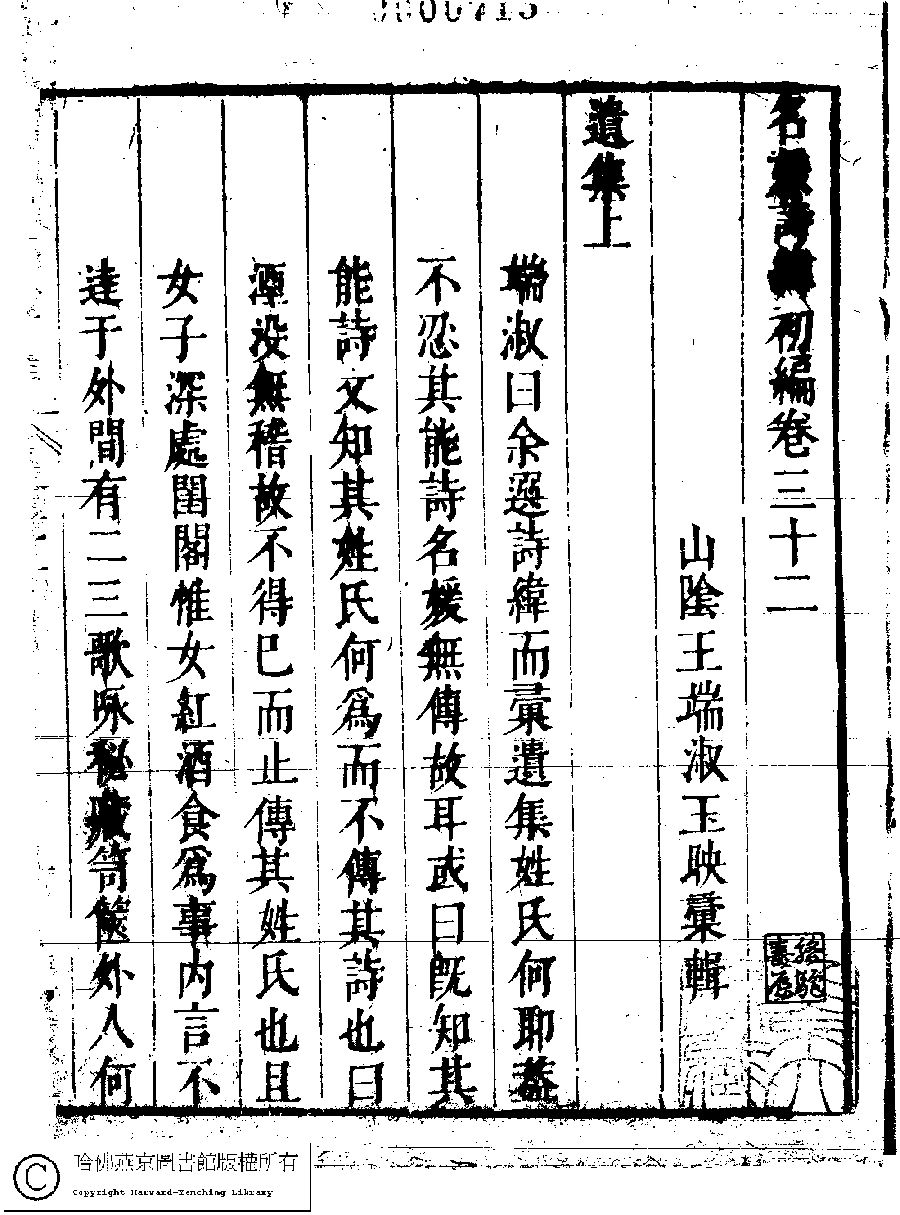 名媛詩緯初編卷三十二
山陰王端淑玉映彙輯
遺集上
端淑曰余選詩緯而彙遺集姓氏何耶蓋
不忍其能詩名媛無傳故耳或曰旣知其
能詩文知其姓氏何爲而不傳其詩也曰
湮没無稽故不得已而止傳其姓氏也且
女子深處閨閣惟女紅酒食爲事内言不
達于外間有二三歌咏秘藏笥篋外人何
哈佛燕京圖書館版權所有
Copyright Harvard-Yenching Library